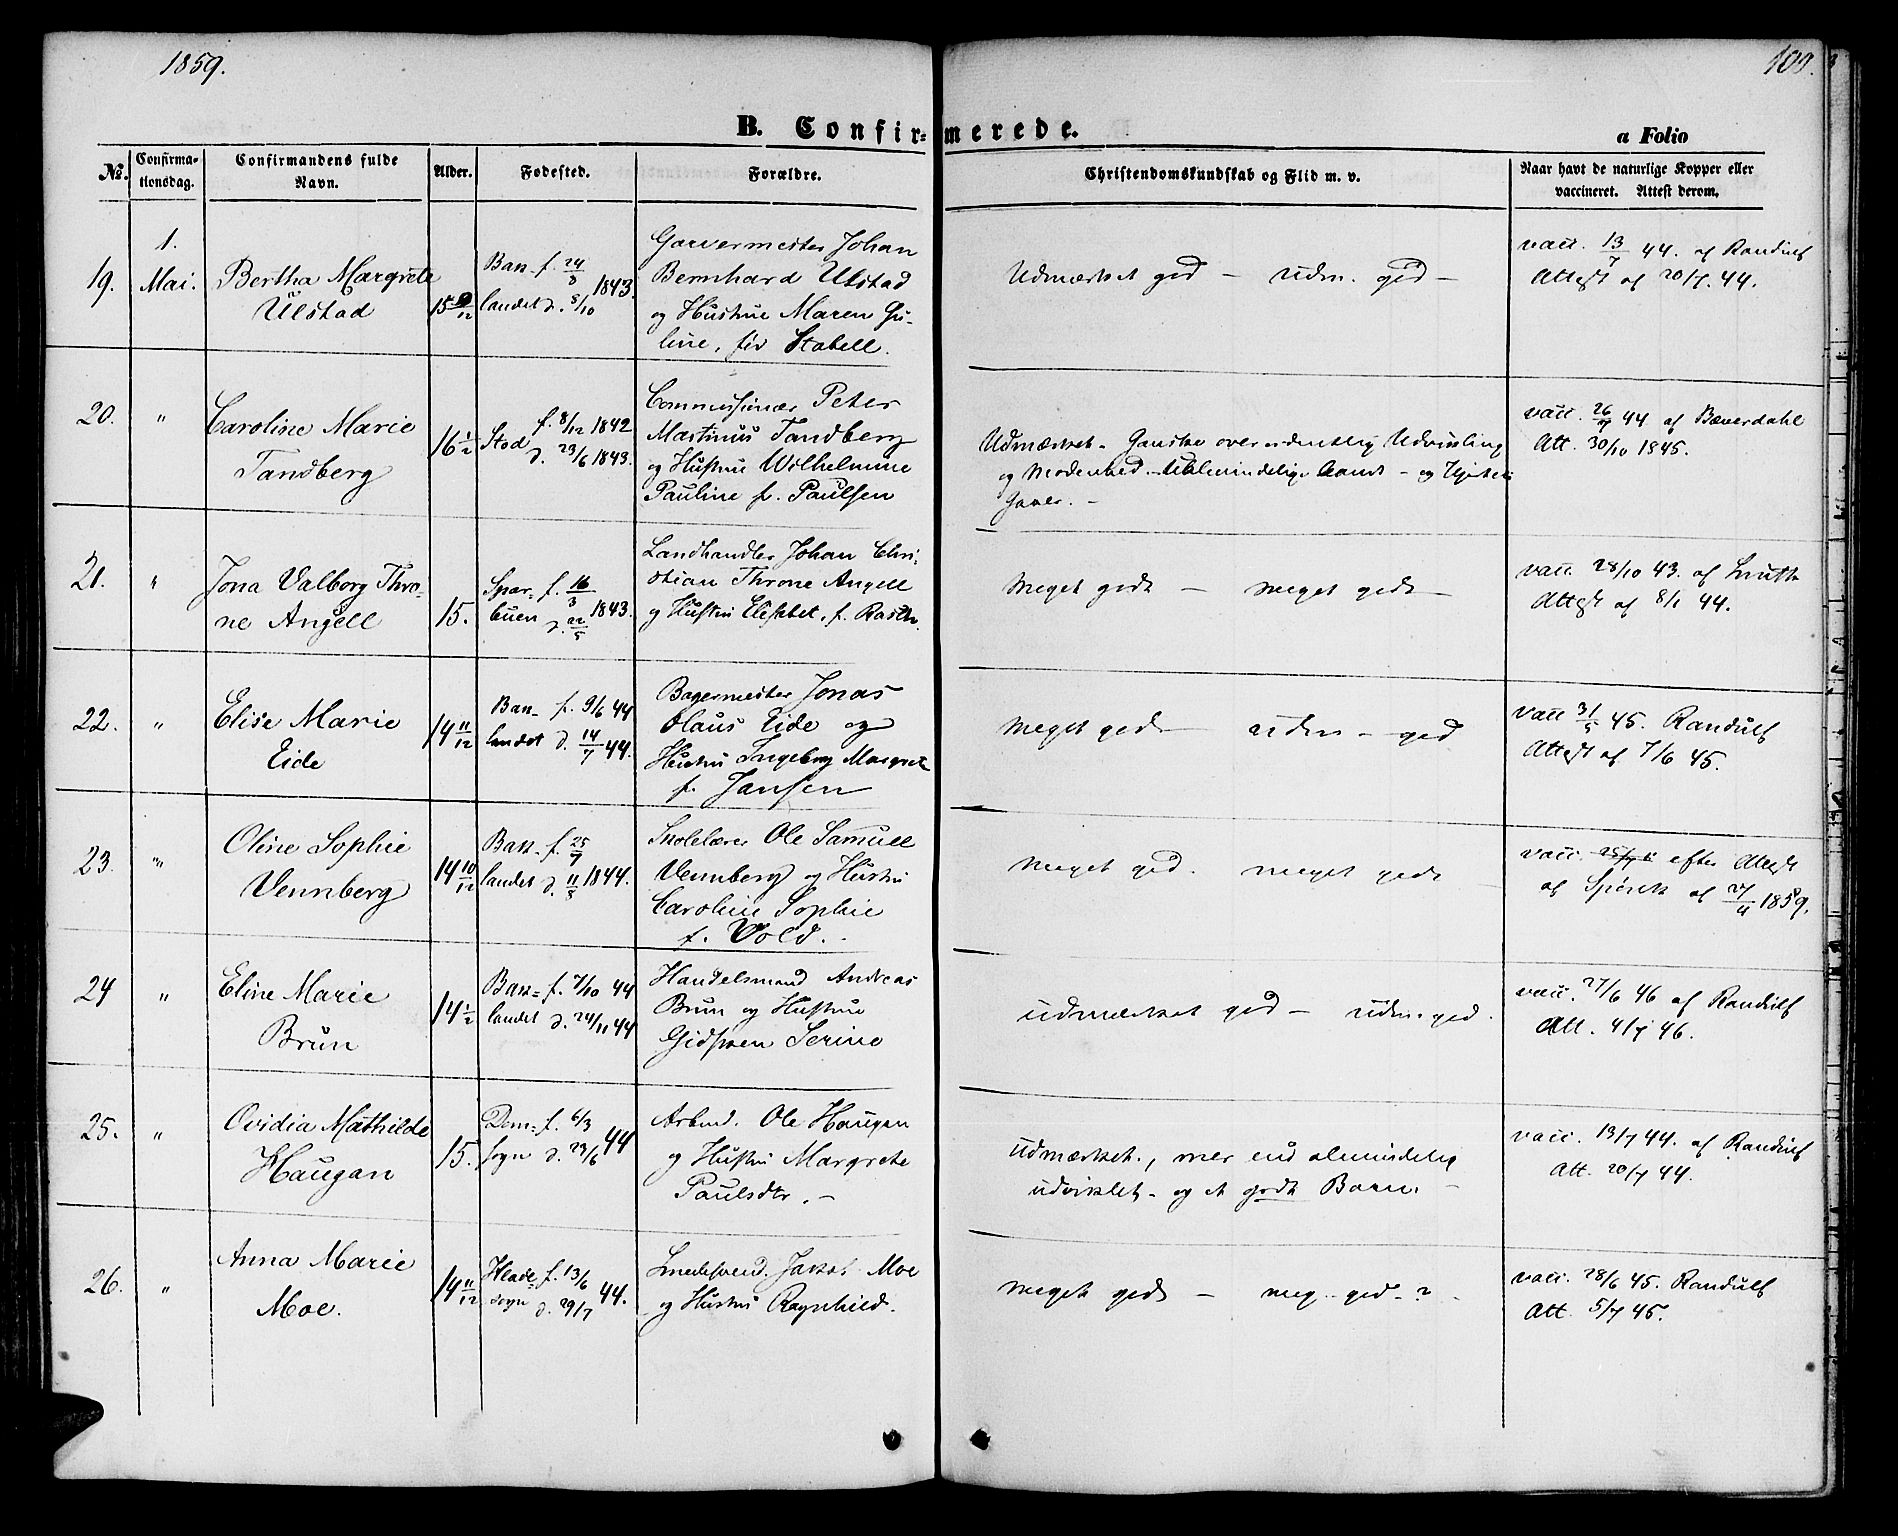 1859.
100.
B. Confir-
merede.
a Folio
No.
Confirma-
tionsdag.
Confirmandens fulde
Navn.
Alder.
Fødested.
Forældre.
Christendomskundskab og Flid m. v.
Naar havt de naturlige Kopper eller
vaccineret. Attest derom.
19.
1.
Mai.
Bertha Margrete
Ulstad
15 9/12
Bak- f. 24/8
landet d. 8/10 1843.
Garvermester Johan
Bernhard Ulstad
og Hustrue Maren Gu-
line, før Stabell.
Udmærket god — udm. god —
vacc. 13/7 44. af Randulf
Attest af 20/7. 44.
20.
"
Caroline Marie
Tandberg
16 1/2
f. 8/12 1842
Stod
d. 23/6 1843.
Commissionær Peter
Martinus Tandberg
og Hustru Wilhelmine
Pauline f. Paulsen
Udmærket. Ganske overordentlig Udvikling
og Modenhed. Ualmindelige Aands- og Hjertets
Gaver. —
vacc. 26/7 44 af Bæverdahl
Att. 30/10 1845.
21.
"
Jona Valborg Thro-
ne Angell
15.
Spar- f. 16/3
buen d. 22/5 1843.
Landhandler Johan Chri-
stian Throne Angell
og Hustru Elisabet. f. Rasch.
Meget godt — meget godt —
vacc. 28/10 43. af
Attest af 8/1 44.
22.
"
Elise Marie
Eide
14 11/12
Bak- f. 9/6 44
landet d. 14/7 44.
Bagermester Jonas
Olaus Eide og
Hustru Ingeborg Margrete
f. Jansen
Meget godt — udm. god
vacc 31/5 45. Randulf
Attest af 7/6 45.
23.
"
Oline Sophie
Vennberg
14 10/12
Bak- f. 25/7
landet d. 11/8 1844.
Skolelærer Ole Samuel
Vennberg og Hustru
Caroline Sophie
f. Vold.
Meget god. meget godt —
vacc. efter Attest
af af 27/4 1859.
24
"
Eline Marie
Brun
14 1/2
Bak- f. 7/10 44
landet d. 24/11 44
Handelsmand Andreas
Brun og Hustrue
Gidsken Serine
udmærket god — udm. god.
vacc. 27/6 46 af Randulf
Att. 4/7 46.
25.
"
Ovidia Mathilde
Haugan
15.
Dom- f. 6/3
sogn d. 23/6 44
Arbmd. Ole Haugan
og Hustru Margrete
Paulsdtr. —
udmærket., mer end almindelig
udviklet. og et godt Barn. —
vacc. 13/7 44. af Randulf
Att. 20/7 44.
26.
"
Anna Marie
Moe.
14 11/12
Hlade f. 13/6
sogn d. 29/7 44.
Smedesvend. Jakob Moe
og Hustru Ragnhild.
meget godt — meg. god.
vacc. 28/6 45. Randulf
Att. 5/7 45.